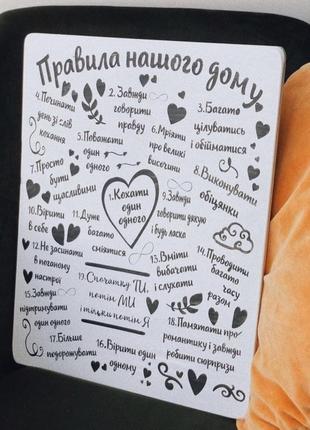 Правила нашого дому
4.Починати
день зі слів
кохання
2.Завжди
говорити
правду
3.Багато
цілуватись
і обійматися
5.Поважати
один
одного
6.Мріяти
про великі
височини
7.Просто
бути
щасливими
8.Виконувати
обіцянки
1.Кохати
один
одного
9.Завжди
говорити дякую
і будь ласка
10.Вірити
в себе
11.Дуже
багато
сміятися
12.Не засинати
в поганому
настрої
13.Вміти
вибачати
і слухати
14.Проводити
багато
часу
разом
15.Завжди
підтримувати
один одного
19.Спочатку ТИ,
потім МИ
і тільки потім Я
18.Памятати про
романтику і завжди
робити сюрпризи
17.Більше
подорожувати
16.Вірити один
одному